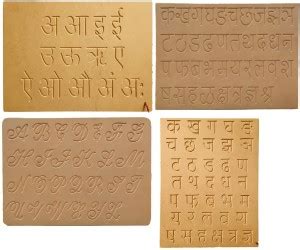 अ आ इ ई
उ ऊ ऋ ए
ऐ ओ औ अं अः
क ख ग घ ङ च छ ज झ ञ
ट ठ ड ढ ण त थ द ध न
प फ ब भ म य र ल व श
ष स ह ळ क्ष त्र ज्ञ श्र
A B C D E F G
H I J K L M
N O P Q R S T
U V W X Y Z
क ख ग घ ङ
च छ ज झ ञ
ट ठ ड ढ ण
त थ द ध न
प फ ब भ म
य र ल व श
ष स ह ळ क्ष